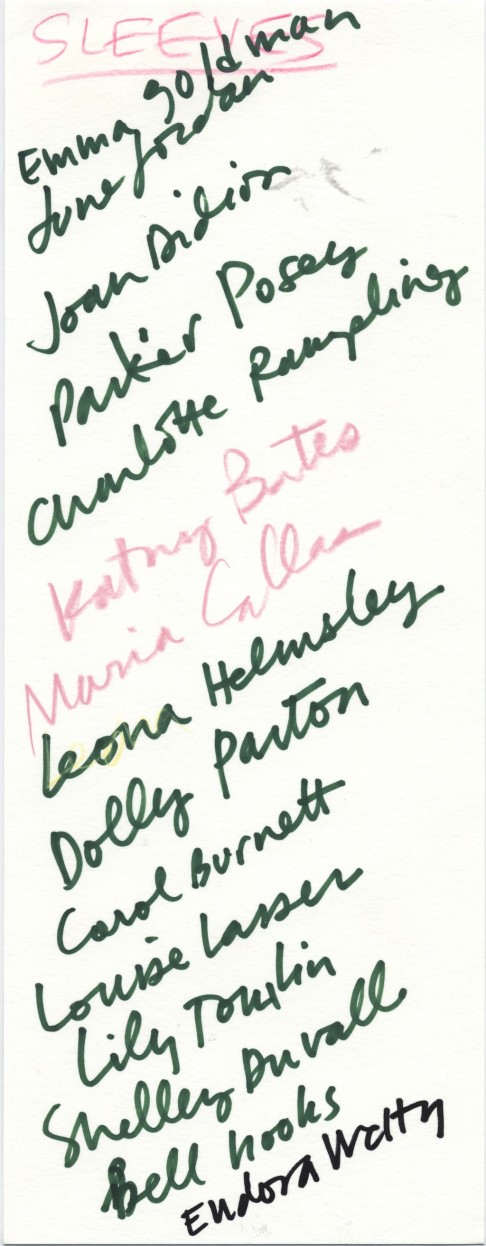 SLEEVES
Emma goldman
June Jordan
Joan Didion
Parker Posey
Charlotte Rampling
Kathy Bates
Maria Callas
Leona Helmsley
Dolly Parton
Carol Burnett
Louise Lasser
Lily Tomlin
Shelley Duvall
Bell hooks
Eudora Welty